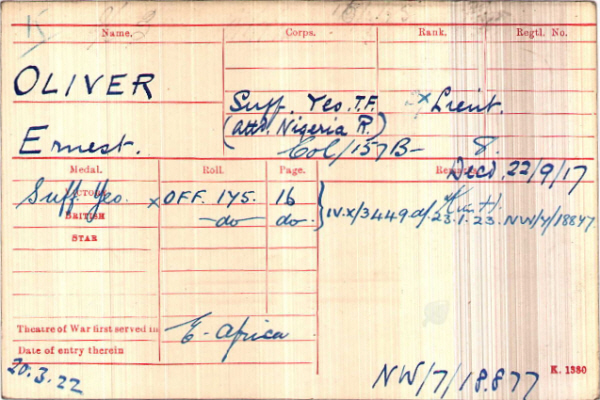 Name. Corps. Rank. Regtl. No.
OLIVER
Suff. Yeo. T.F. x Lieut.
(attd. Nigeria R.)
Ernest. Col/157B- 8.
Decd. 22/9/17
Medal. Roll. Page.
VICTORY Suff. Yeo. x OFF. 175. 16
BRITISH do do. } IV.X/3449 23.1.23. NW/7/18877
STAR
Theatre of War first served in E. Africa
Date of entry therein
20.3.22
NW/7/18.877 K. 1380